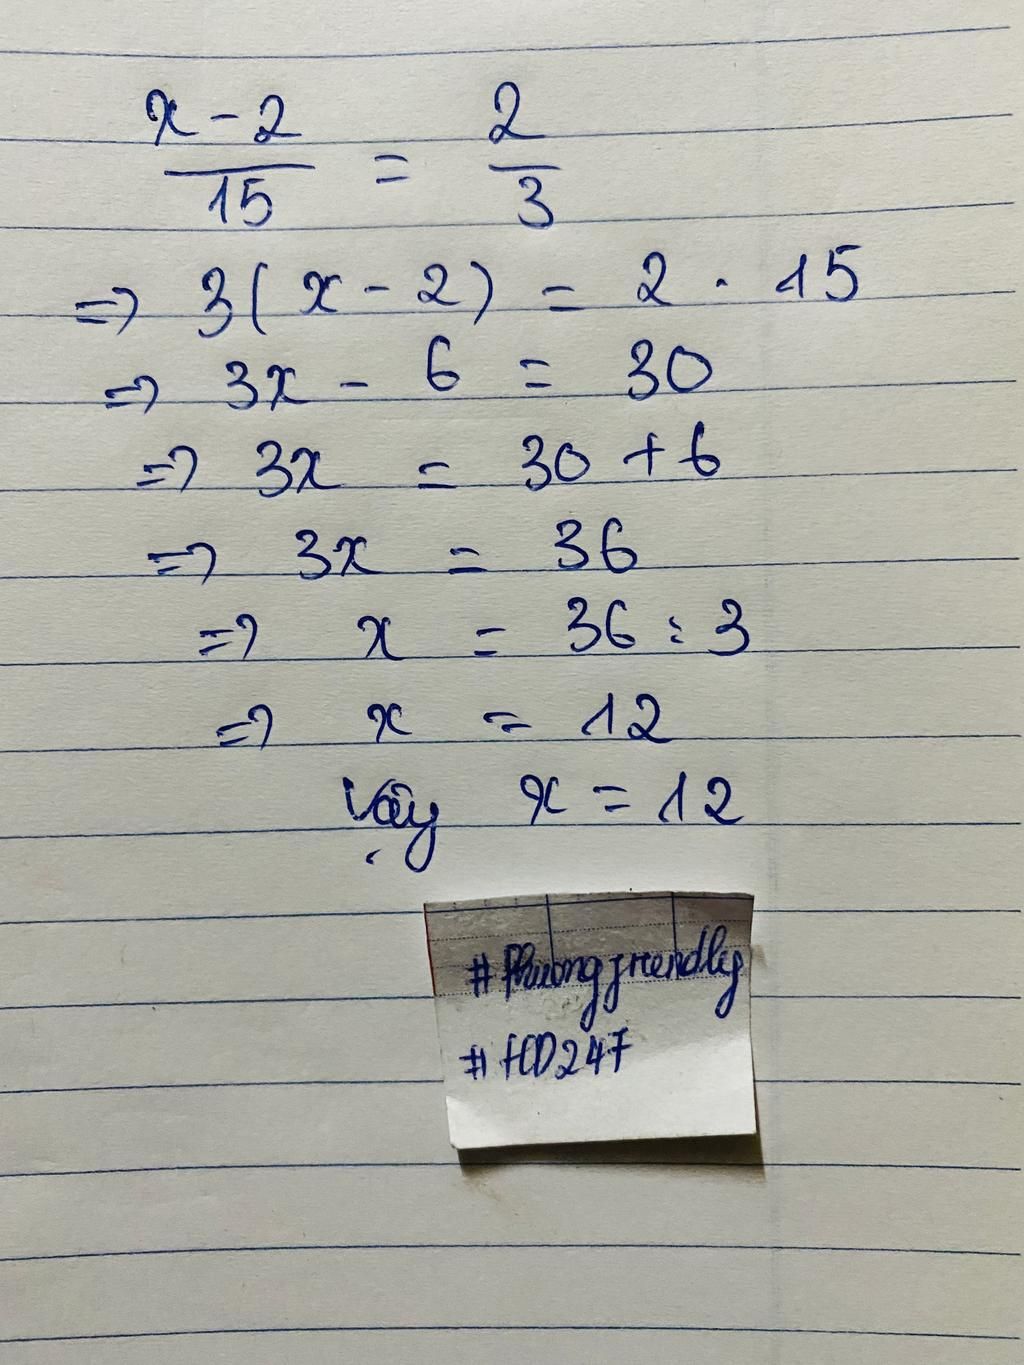 x - 2 / 15 = 2 / 3
=> 3(x - 2) = 2 . 15
=> 3x - 6 = 30
=> 3x = 30 + 6
=> 3x = 36
=> x = 36 : 3
=> x = 12
Vậy x = 12
#Phuongfriendly
#HD247